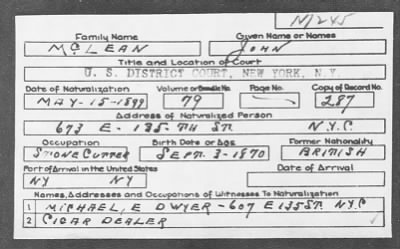 N/245
Family Name Given Name or Names
McLEAN JOHN
Title and Location of Court
U. S. DISTRICT COURT, NEW YORK, N.Y.
Date of Naturalization Volume or Bundle No. Page No. Copy of Record No.
MAY-15-1899 79 — 287
Address of Naturalized Person
673 E-135TH ST. N.Y.C.
Occupation Birth Date or Age Former Nationality
STONE CUTTER SEPT. 3-1870 BRITISH
Port of Arrival in the United States Date of Arrival
NY NY
Names, Addresses and Occupations of Witnesses To Naturalization
1 MICHAEL, E DWYER-607 E 135 ST. NYC
2 CIGAR DEALER